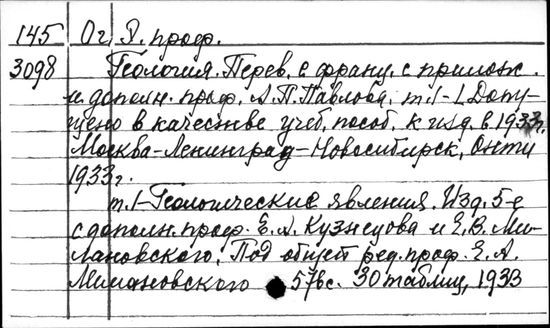 145 Ог, Э. проф.
3098 Геология. Перев. с франц. с прилож.
и дополн. проф. А.П. Павлова, т. I- Допу-
щено в качестве учеб. пособ. к изд. в 1933г.
Москва-Ленинград-Новосибирск, Онти
1933г.
т. I-Геологические явления. Изд. 5-е
с дополн. проф. Е.А. Кузнецова и Е.В. Ми-
лановского. Под общей ред. проф. Е.А.
Милановского 576с. 30 таблиц, 1933